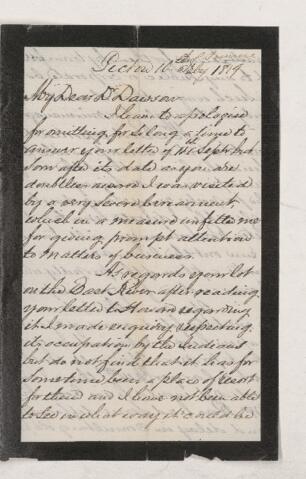 Pictou 16th July 1859
My Dear Dr Dawson
I have to apologise
for omitting for so long a time to
answer your letter of 1st Sept but
soon after its date as you are
doubtless aware I was visited
by a very severe bereavement
which in a measure unfitted me
for giving prompt attention
to matters of business.
As regards your lot
on the East River after reading
your letter to Howard regarding
it I made enquiry respecting
its occupation by the Indians
but do not find that it has for
sometime been a place of resort
for them and I have not been able
to see in what way it could be